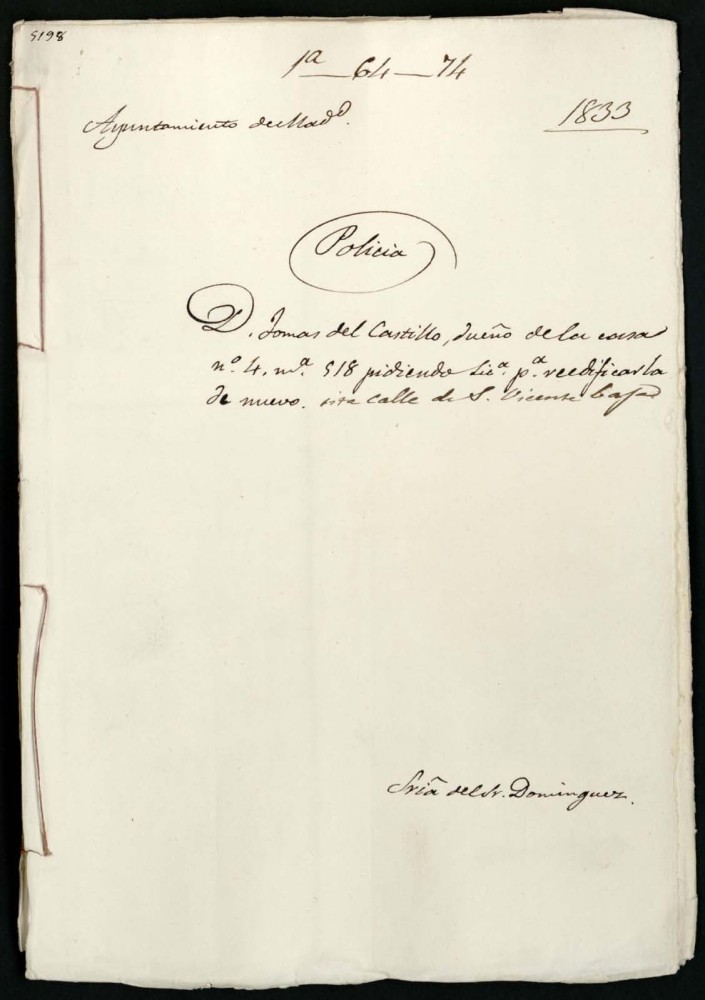 5198
1ª 64 — 74
Ayuntamiento de Madd.
1833
Policia
D. Tomas del Castillo, dueño de la casa
nº. 4. mª. 518 pidiendo Licª. pª. reedificarla
de nuevo. sita calle de S. Vicente baja
Sriã del Sr. Dominguez.